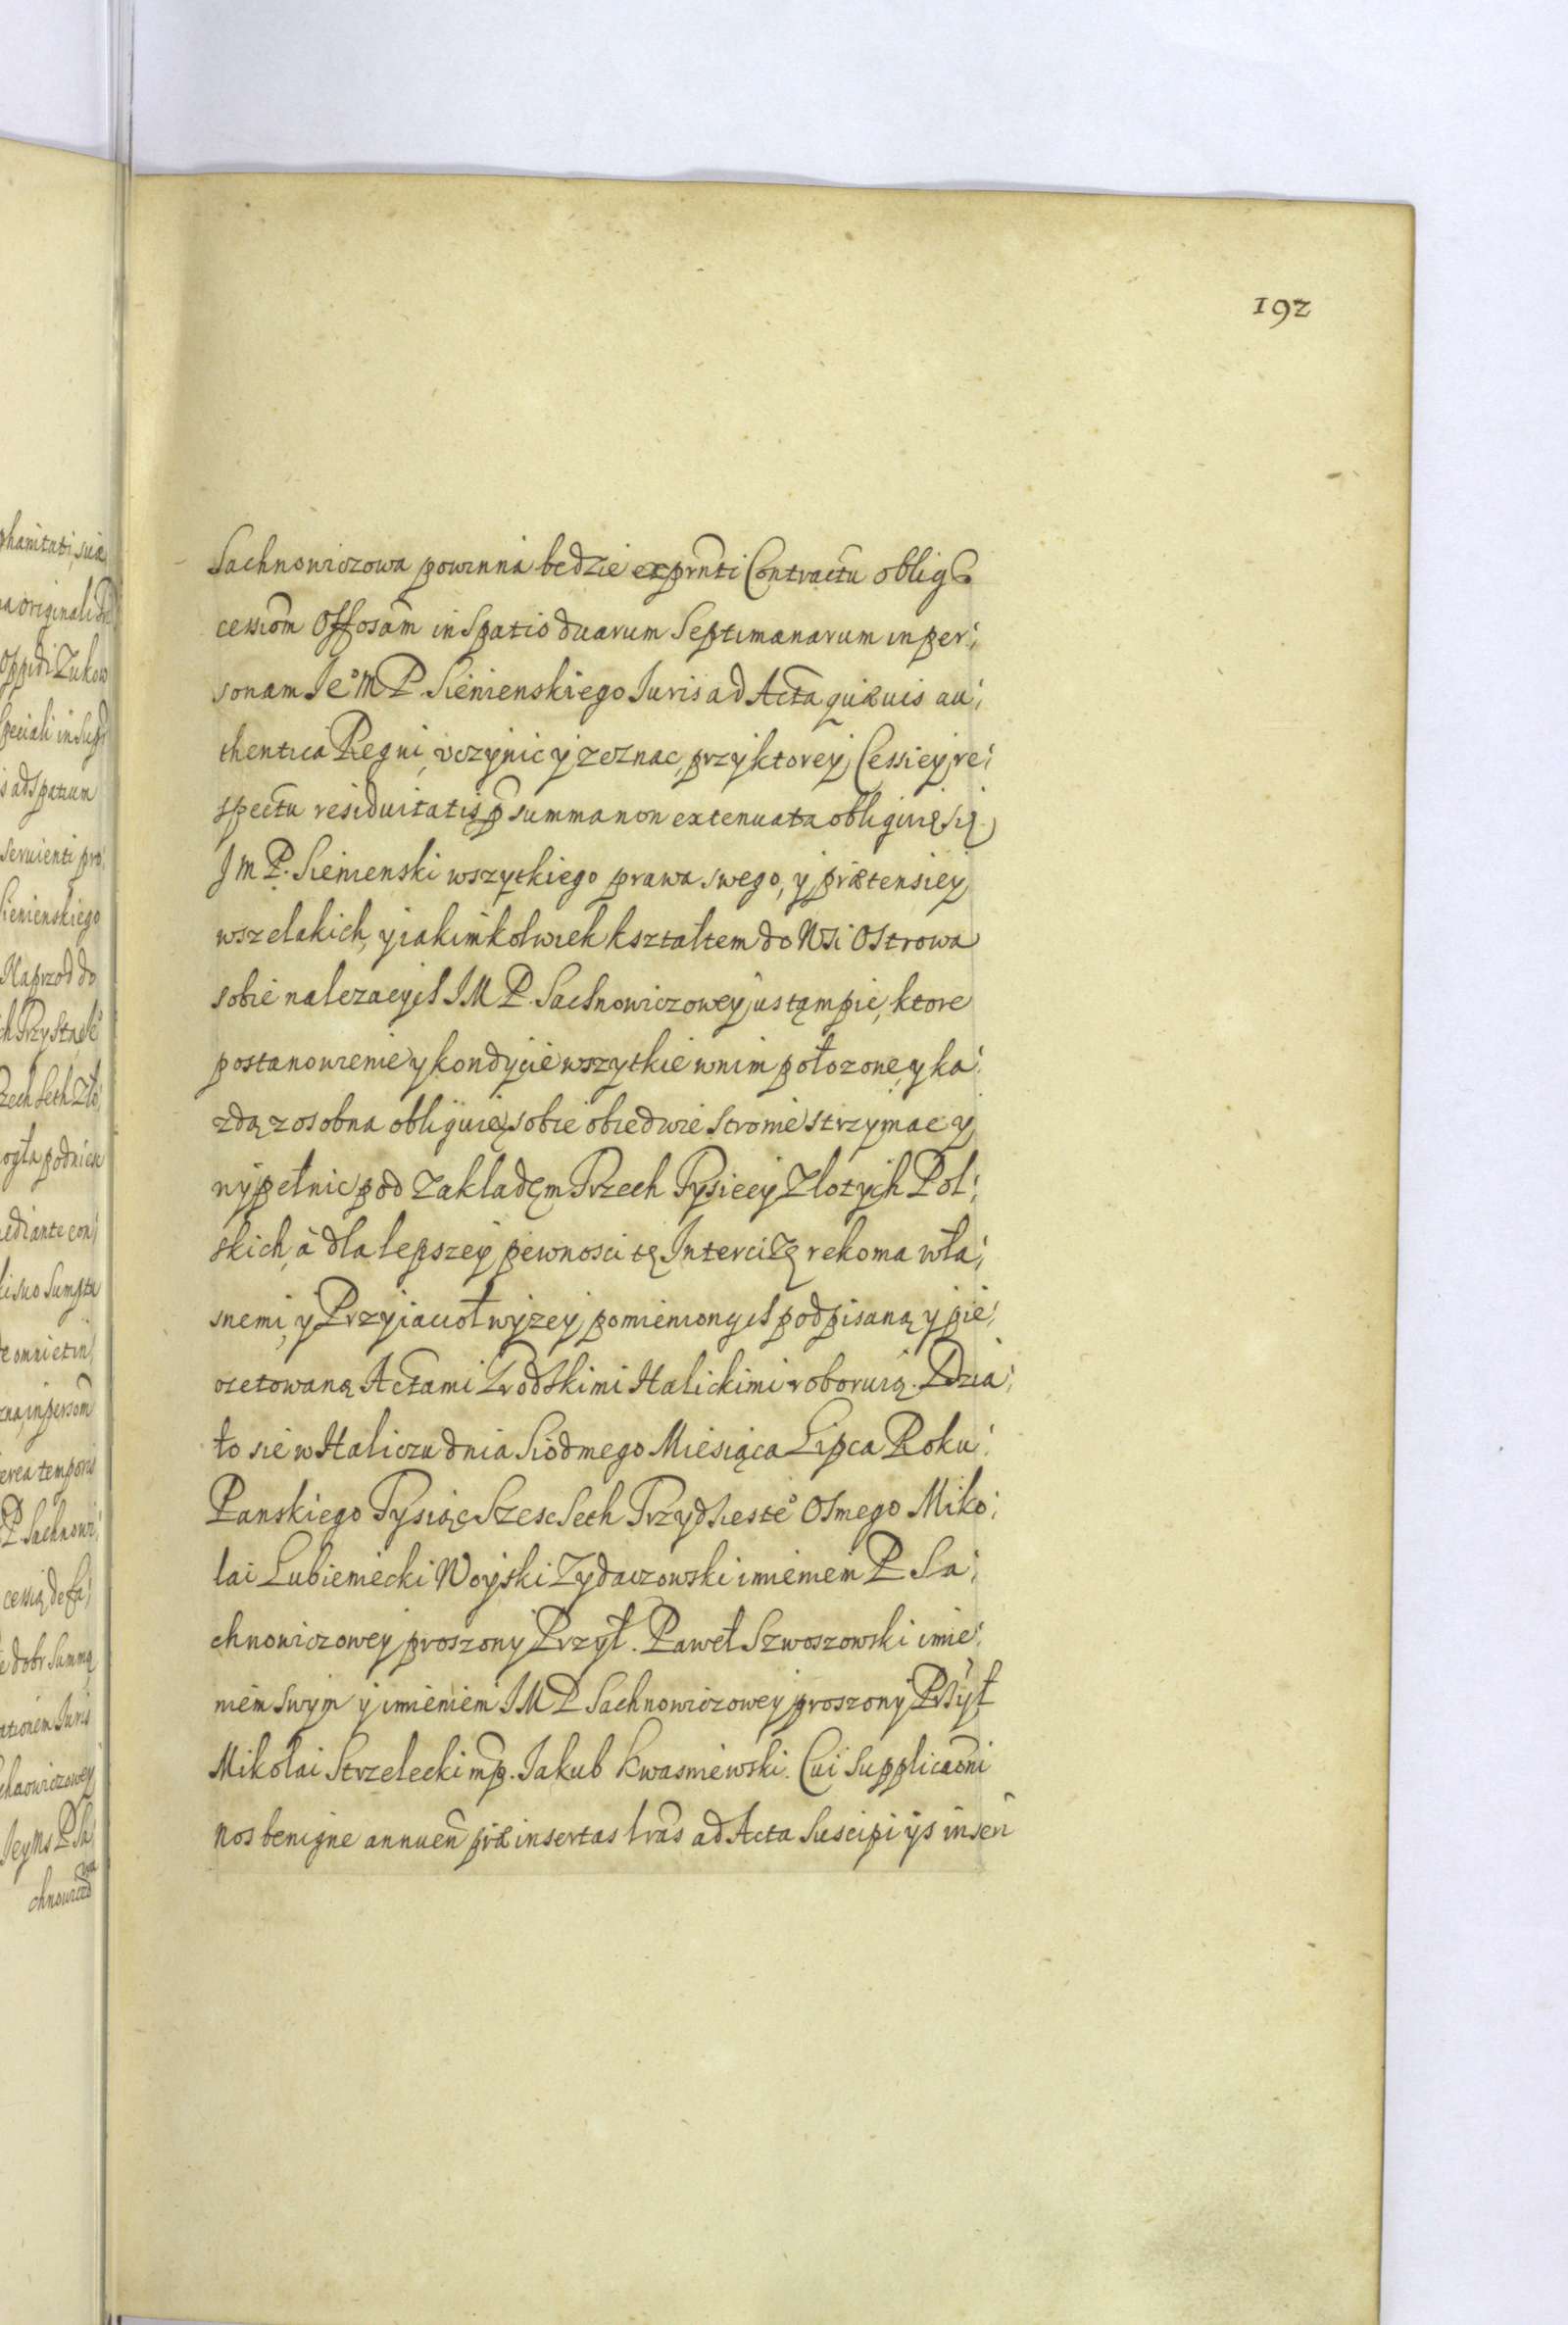 192
Sachnowiczowa powinna bedzie ex prnti Contractu oblig
cessiom Offosam in Spatio duarum Septimanarum in per:
sonam Je° M P. Sienienskiego Iuris ad Acta quæuis au:
thentica Regni, vczynic y zeznac, przy ktorey Cessiey re:
spectu residuitatis p summa non extenuata obliguię się
J m P. Sienienski wszytkiego prawa swego, y prætensiey
wszelakich, y iakimkolwiek kształtem do Wsi Ostrowa
sobie nalezacych IM P. Sachnowiczowey ustąmpic, ktore
postanowienie y kondycie wszytkie w nim połozone, y ka:
zdą z osobna obliguię sobie obiedwie stronie strzymac y
wypełnic pod Zakladęm Trzech Tysiecy Złotych Pol:
skich, à dla lepszey pewnosci tę Intercizę rekoma wła:
snemi, y Przyiacioł wyzey pomienionych podpisaną y pie:
czetowaną Actami Grodskimi Halickimi roboruią. Dzia:
ło sie w Haliczu dnia Siodmego Miesiąca Lipca Roku:
Panskiego Tysiąc Szesc Seth Trzydzieste° Osmego Miko:
lai Lubieniecki Woyski Zydaczowski imieniem P Sa:
chnowiczowey proszony Przył. Paweł Szwoszowski imie:
niem swym y imieniem IM P Sachnowiczowey proszony Przył
Mikołai Strzelecki mp. Jakub Kwasniewski. Cui Supplicaoni
nos benigne annuen præinsertas lras ad Acta Suscipi ijs inseri